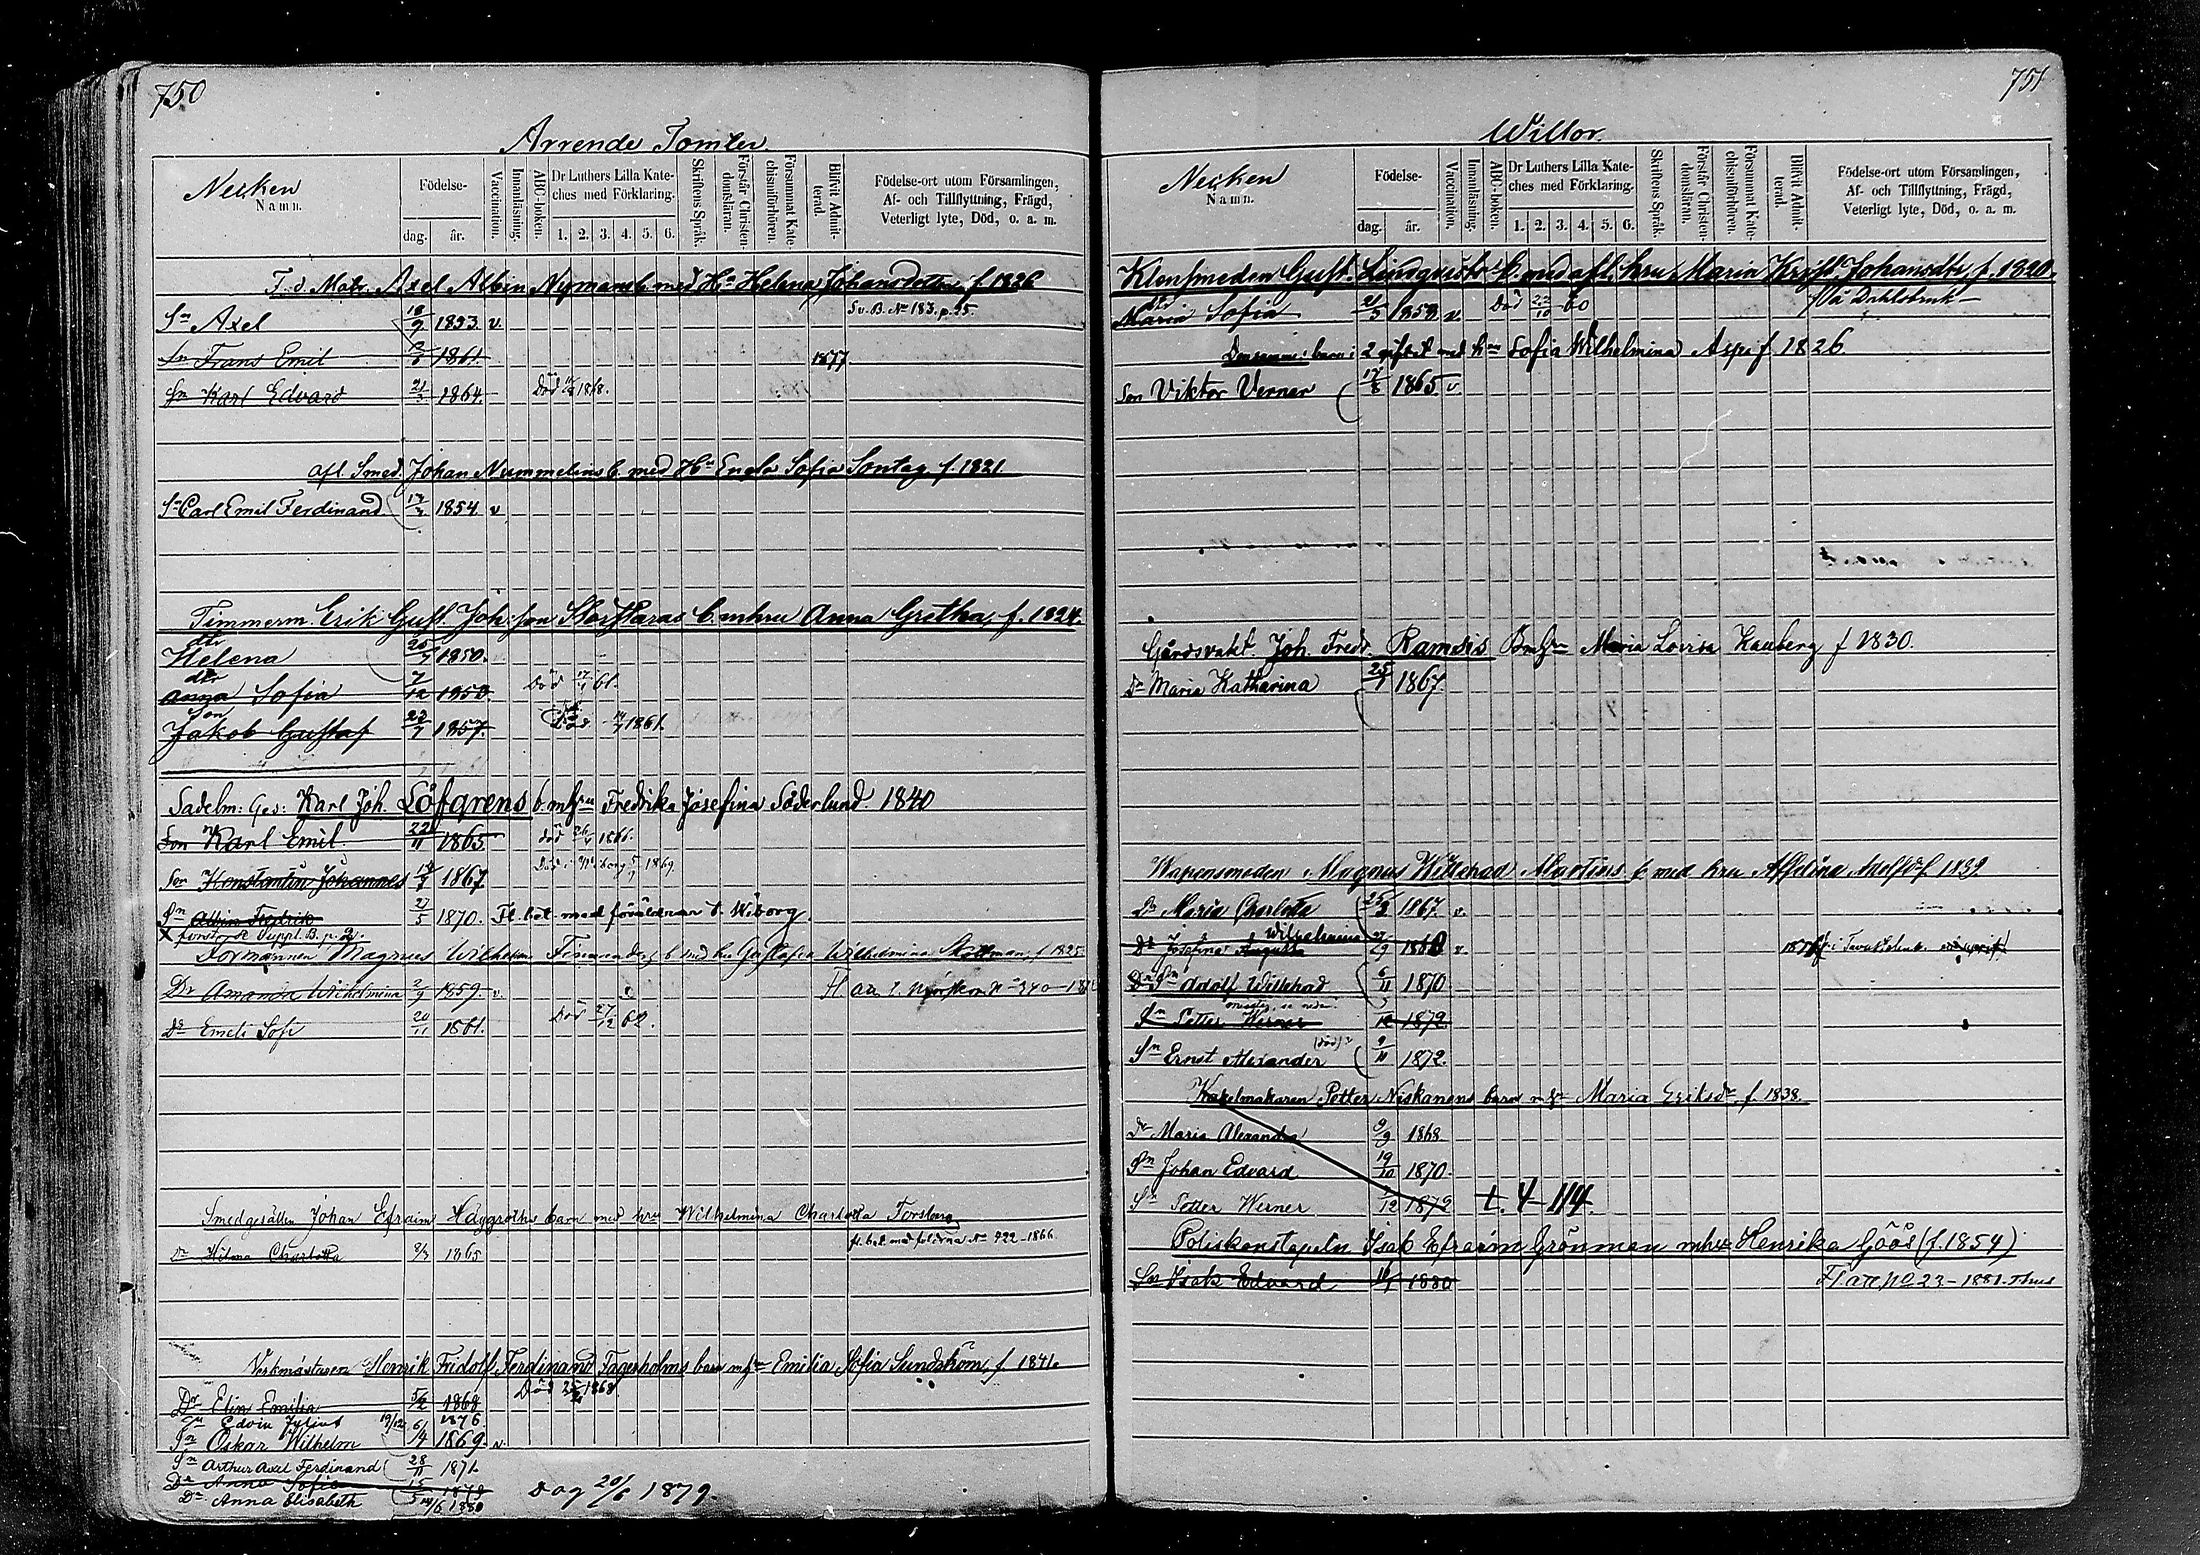 750
Arrende Tomter
Necken
Namn.
Födelse-
dag.
år.
Vaccination.
Innanläsning.
ABC-boken.
Dr Luthers Lilla Kate-
ches med Förklaring.
1. 2. 3. 4. 5. 6.
Skriftens Språk.
Förstår Christen-
domsläran.
Försummat Kate-
chismiförhören.
Blifvit Admit-
terad.
Födelse-ort utom Församlingen,
Af- och Tillflyttning, Frägd,
Veterligt lyte, Död, o. a. m.
F. d. Matr. Axel Albin Nymans b. med Hu Helena Johansdotter f. 1826
Sn Axel 18/9 1853. v. Sv. B. No 183. p. 95.
Sn Frans Emil 1861. 1877
Sn Karl Edvard 21/3 1864. Död 1868.
afl. Smed. Johan Nummelins b. med Hu Engla Sofia Sontag f. 1821
Sn Carl Emil Ferdinand 1854 v
Timmerm. Erik Gust. Joh:son b. m hru Anna Gretha, f. 1824.
dtr
Helena 25/7 1850.
dtr
Anna Sofia 7/12 1850. Död 17/1 61.
Son
Jakob Gustaf 22/7 1857. Död 1861.
Sadelm: Ges: Karl Joh. Löfgrens b. m hru Fredrika Josefina Söderlund 1840
Son Karl Emil. 22/11 1865 död 26/4 1866.
Son Konstantin Johannes 1867 Död i Wiborg 5/7 1869.
Sn Albin Fredrik 27/5 1870. Fl. bet. med föräldrarna t. Wiborg.
X forts. se Suppl. B. p. 2.
Formannen Magnus Wilhelm b med hu Gustafva Wilhelmina f. 1825
Dr Amanda Wilhelmina 2/9 1859. v.
Dr Emeli Sofi 20/11 1861. Död 27/12 62.
Smedgesällen Johan Efraim Häggroths barn med hru Wilhelmina Charlotta Forsberg
Dr Hilma Charlotta 8/3 1865 fl. bet. med föräldrna No 922-1866
Verkmästaren Henrik Fridolf Ferdinand Fagerholms barn m hu Emilia Sofia Sundström, f. 1841.
Dr Elin Emilia 5/2 1868 Död 1868
Sn Edvin Julius 1876
Sn Oskar Wilhelm 1/4 1869. v.
Sn Arthur Axel Ferdinand 28/11 1871
Dr Anna Sofia 15/5 1879 Dog 20/6 1879.
Dr Anna Elisabeth 1880
751
Willor.
Necken
Namn.
Födelse-
dag.
år.
Vaccination.
Innanläsning.
ABC-boken.
Dr Luthers Lilla Kate-
ches med Förklaring.
1. 2. 3. 4. 5. 6.
Skriftens Språk.
Förstår Christen-
domsläran.
Försummat Kate-
chismiförhören.
Blifvit Admit-
terad.
Födelse-ort utom Församlingen,
Af- och Tillflyttning, Frägd,
Veterligt lyte, Död, o. a. m.
Klensmeden Gust. Lindqvists b. med afl. hru Maria Krist. Johansdtr f. 1820.
dr
Maria Sofia 21/3 1858 v. Död 22/10 60 På Dahlsbruk
Densamme: barn i 2 giftet med hru Sofia Wilhelmina Asp f 1826.
Son Viktor Verner 17/8 1865. v.
Gårdsvakt Joh. Fredr. Ramsis B m hru Maria Lovisa Kauberg f 1830.
Dr Maria Katharina 25/1 1867.
Wapensmeden Magnus Willehad Martins b med hru f. 1839
Dr Maria Charlotta 25/3 1867. v.
Wilhelmina
Dr Josefina Augusta 1860 v. i Tavastehus
Sn Adolf Willehad 6/11 1870
misstag se nedan
Sn Petter Werner 1872
Sn Ernst Alexander (död)? 9/11 1872.
Kakelmakaren Petter Niskanens barn m hu Maria Eriksdr, f. 1838.
Dr Maria Alexandra 9/9 1868
Sn Johan Edvard 19/10 1870
Sn Petter Werner 1872 t. 4-114
Poliskonstapeln Isak Efraim Grönman m hu Henrika Göös (f. 1854)
Sn Isak Edvard 1880 Fl att No 23-1881.